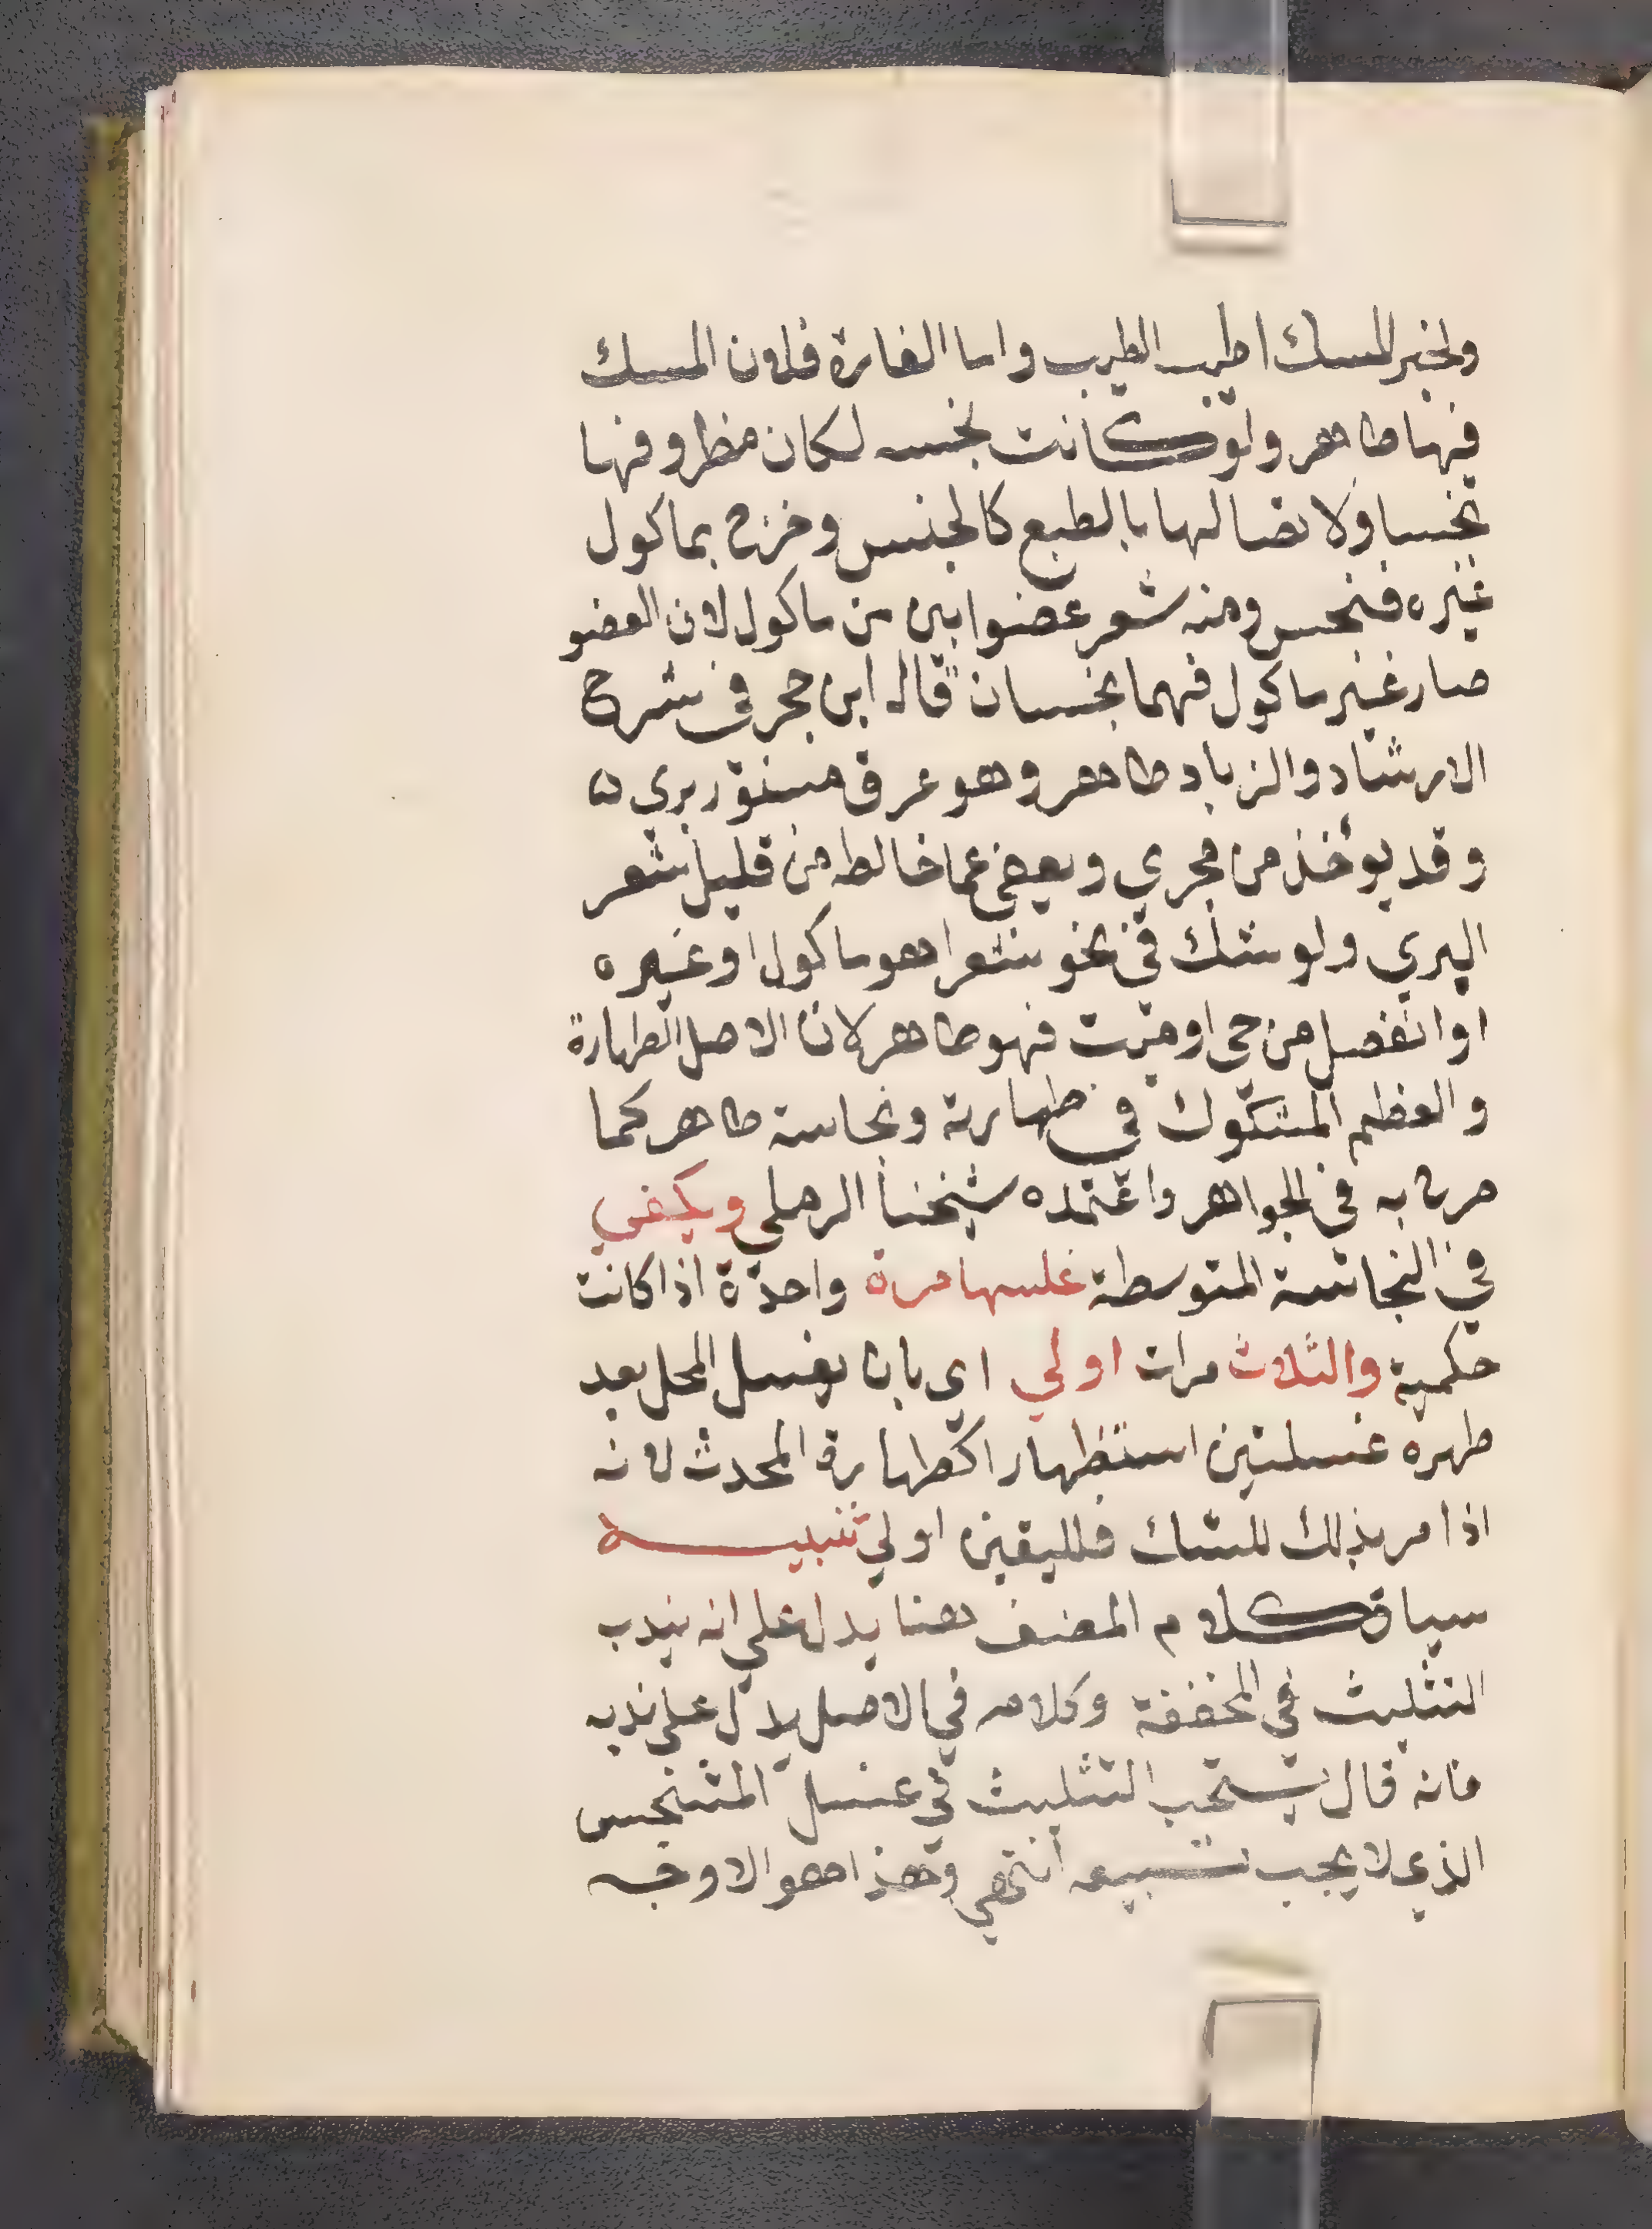 ولخبر المسك اطيب الطيب واما الفارة فلان المسك
فيها طاهر ولو كانت نجسه لكان مظروفها
نجسا ولاتصالها بالطبع كالجنين وخرج بماكول
غيره فنجس ومنه شعر عضو ابين من ماكول لان العضو
صار غير ماكول فهما نجسان قاله ابن حجر في شرح
الارشاد والزباد طاهر وهو عرق سنور بري
وقد يوخذ من بحري ويعفى عما خالطه من قليل شعر
البري ولو شك في نحو شعر اهو ماكول او غيره
او انفصل من حي او ميت فهو طاهر لان الاصل الطهارة
والعظم المشكوك في طهارته ونجاسته طاهر كما
صرح به في الجواهر واعتمده شيخنا الرملي ويكفي
في النجاسة المتوسطة غسلها مرة واحدة اذا كانت
حكمية والثلاث مرات اولي اى بان يغسل المحل بعد
طهره غسلتين استظهارا كطهارة المحدث لانه
اذا امر بذلك للشك فلليقين اولي تنبيه
سياق كلام المصنف هنا يدل علي انه يندب
التثليث في المخففة وكلامه في الاصل يدل علي ندبه
فانه قال يستحب التثليث في غسل المتنجس
الذي لا يجب تسبيعه انتهي وهذا هو الاوجه